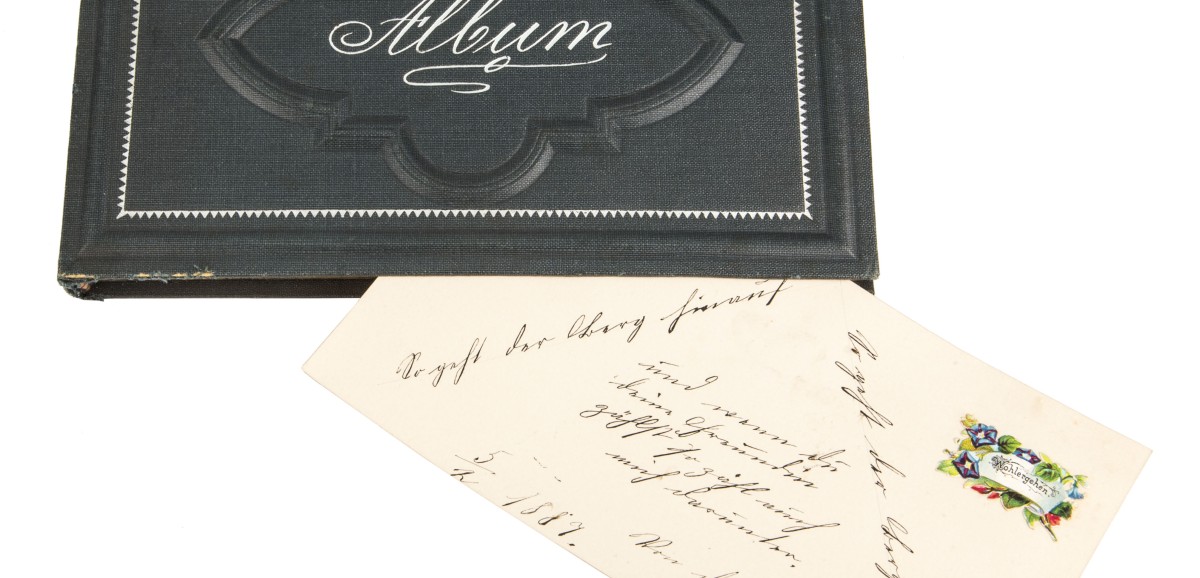 Album
So geht der Berg hinauf
und wenn du
deine Freundin
zählst, so zähl auch
mich darunter.
5/
1887.
Von
So geht der Berg
Wohlergehen.